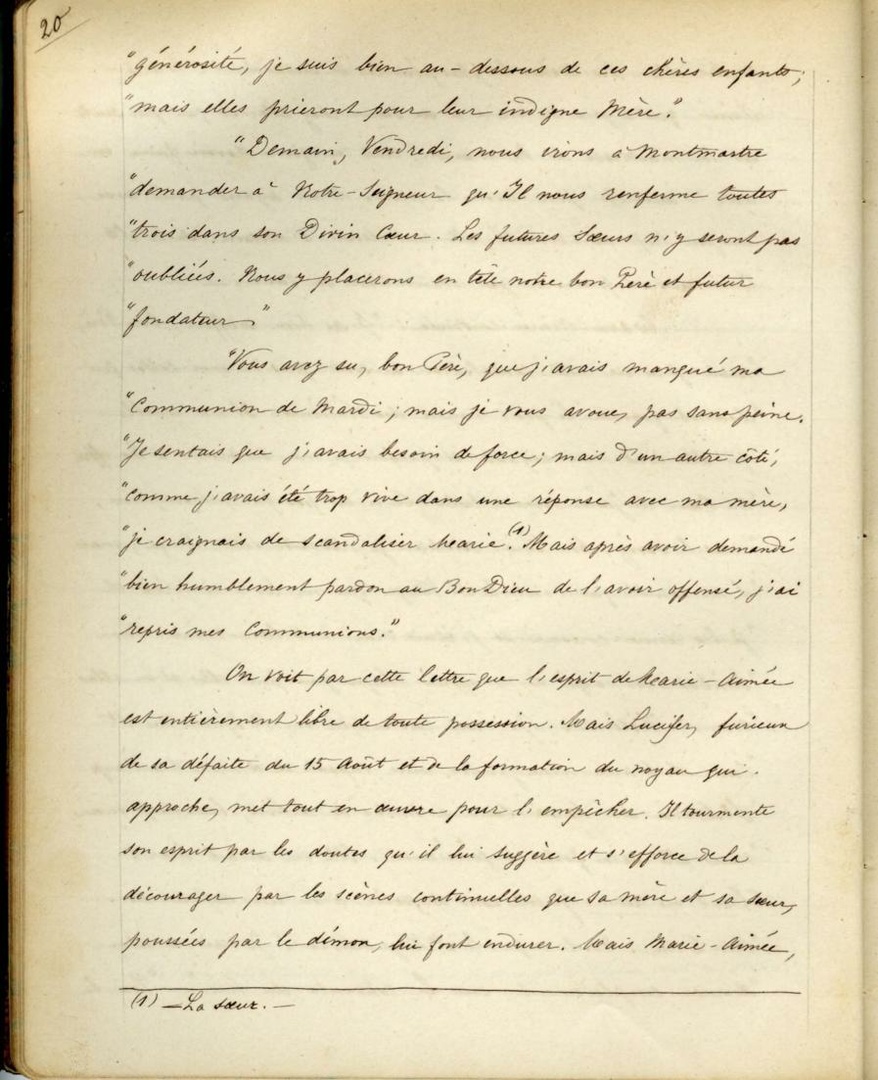 20
"générosité, je suis bien au-dessous de ces chères enfants;
"mais elles prieront pour leur indigne Mère."
"Demain, Vendredi, nous irons à Montmartre
"demander à Notre-Seigneur qu'Il nous renferme toutes
"trois dans son Divin Cœur. Les futures Sœurs n'y seront pas
"oubliées. Nous y placerons en tête notre bon Père et futur
"fondateur"
"Vous avez su, bon Père, que j'avais manqué ma
"Communion de Mardi; mais je vous avoue, pas sans peine.
"Je sentais que j'avais besoin de force; mais d'un autre côté,
"comme j'avais été trop vive dans une réponse avec ma mère,
"je craignais de scandaliser Marie.(1) Mais après avoir demandé
"bien humblement pardon au Bon Dieu de l'avoir offensé, j'ai
"repris mes Communions."
On voit par cette lettre que l'esprit de Marie-Aimée
est entièrement libre de toute possession. Mais Lucifer, furieux
de sa défaite du 15 Août et de la formation du noyau qui
approche, met tout en œuvre pour l'empêcher. Il tourmente
son esprit par les doutes qu'il lui suggère et s'efforce de la
décourager par les scènes continuelles que sa mère et sa sœur,
poussées par le démon, lui font endurer. Mais Marie-Aimée,
(1) — La sœur. —